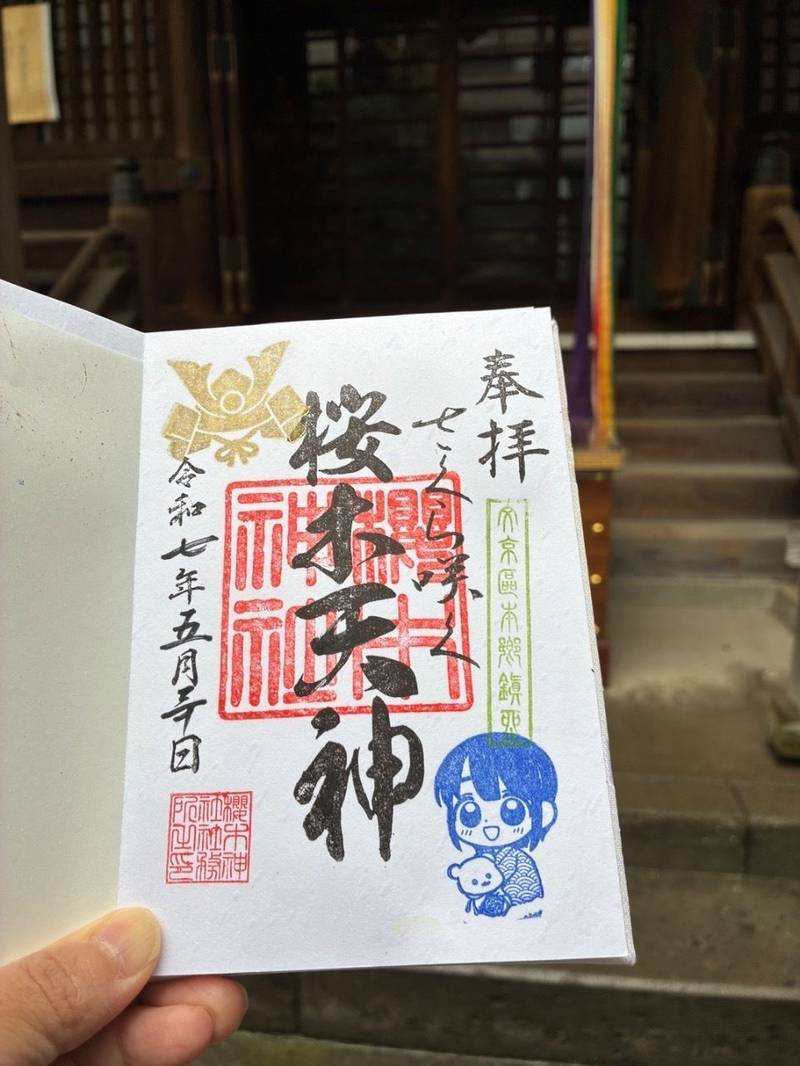 奉拝
文京區本郷鎮座
さくら咲く
桜木天神
櫻木神社
令和七年五月三十日
櫻木神
社社務
所之印